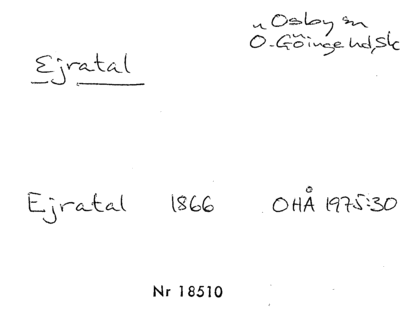 n Osby sn
Ö. Göinge hd, Sk
Ejratal
Ejratal 1866 OHÅ 1975:30
Nr 18510